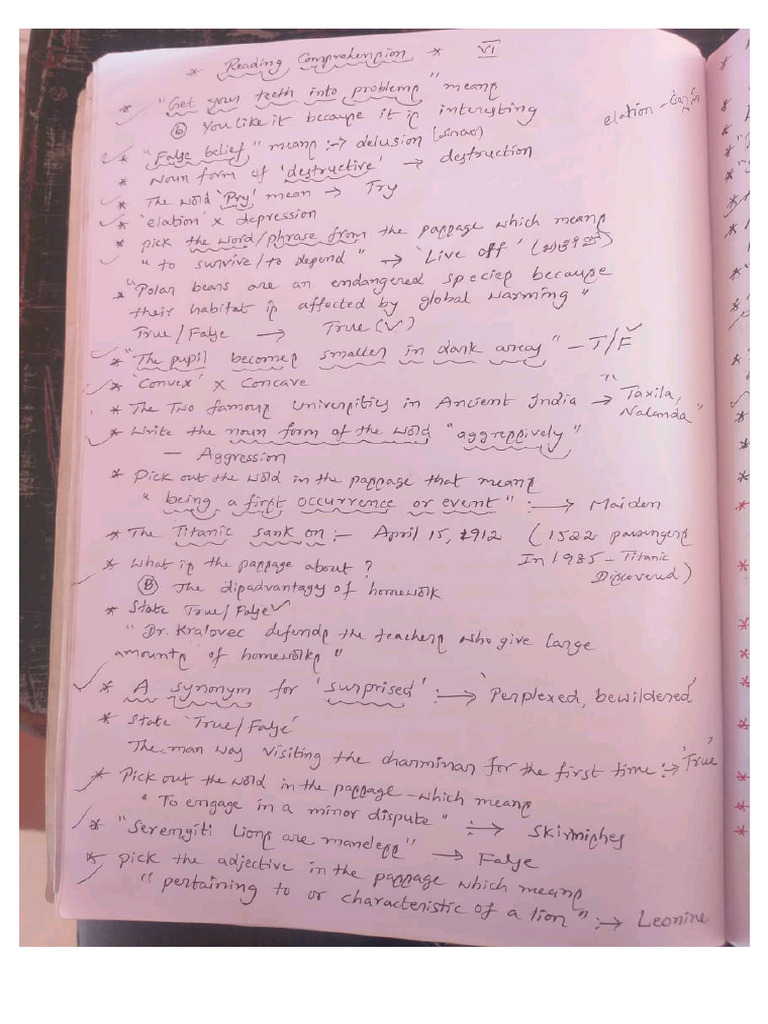 * Reading Comprehension * VI
* "Get your teeth into problems" means
(b) You like it because it is interesting
elation -
* "False belief" means :-> delusion
* Noun form of 'destructive' -> destruction
* The word 'Pry' mean -> Try
* 'elation' x depression
* pick the word/phrase from the passage which means
" to survive/to depend" -> 'Live off'
* "Polar bears are an endangered species because
their habitat is affected by global warming"
True/False -> True (✓)
* "The pupil becomes smaller in dark areas" - T/F✓
* 'Convex' x Concave
* The Two famous Universities in Ancient India -> "Taxila,
Nalanda"
* Write the noun form of the word "aggressively"
- Aggression
* Pick out the word in the passage that means
" being a first occurrence or event" :-> Maiden
* The Titanic sank on :- April 15, 1912 (1522 passengers
In 1985 - Titanic
Discovered)
* What is the passage about?
(B) The disadvantages of homework
* State True/False✓
" Dr. Kralovec defends the teachers who give large
amounts of homeworks"
* A synonym for 'surprised' :-> 'Perplexed, bewildered'
* State 'True/False'
The man was visiting the charminar for the first time :-> 'True'
* Pick out the word in the passage which means
" To engage in a minor dispute" :-> Skirmishes
* "Serengiti Lions are maneless" -> False
* pick the adjective in the passage which means
" pertaining to or characteristic of a lion" :-> Leonine